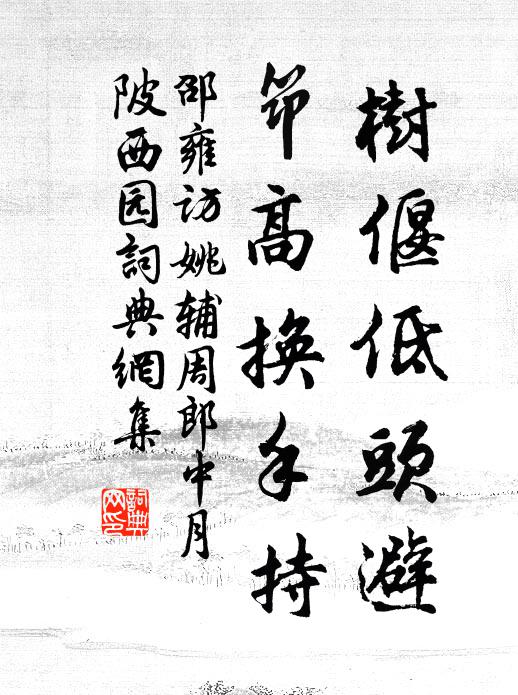 樹偃低頭避
笻高換手持
邵雍訪姚輔周郎中月
陂西园詞典網集
詞典
网印